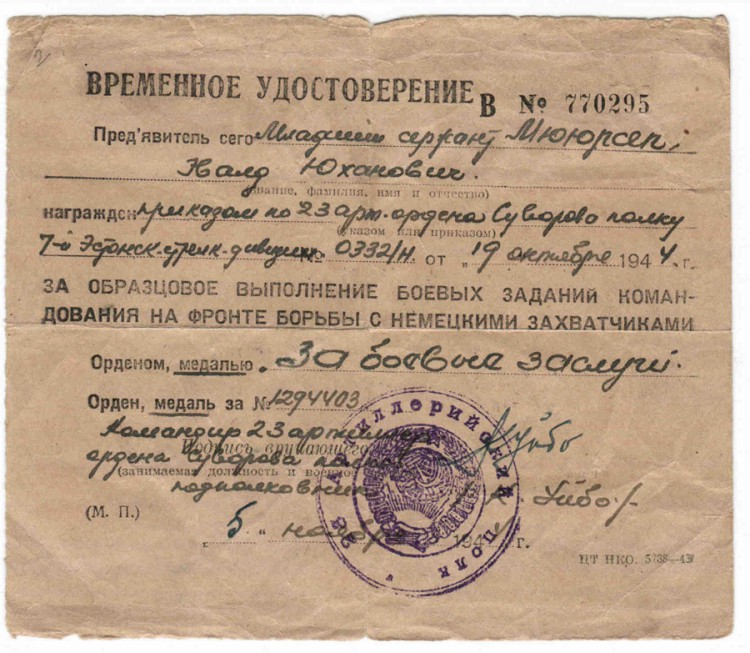 ВРЕМЕННОЕ УДОСТОВЕРЕНИЕ В № 770295
Пред'явитель сего Младший сержант Мююрсеп,
Халд Юханович.
(звание, фамилия, имя и отчество)
награжден приказом по 23 арт. ордена Суворова полку
(указом или приказом)
7-й Эстонск. стрелк. дивизии 0332/н от „19 октября 1944 г.
ЗА ОБРАЗЦОВОЕ ВЫПОЛНЕНИЕ БОЕВЫХ ЗАДАНИЙ КОМАН-
ДОВАНИЯ НА ФРОНТЕ БОРЬБЫ С НЕМЕЦКИМИ ЗАХВАТЧИКАМИ
Орденом, медалью „За боевые заслуги.
Орден, медаль за № 1294403
Командир 23 артиллер.
Подпись вручающего
ордена Суворова полка
(занимаемая должность и военное
подполковник Уйбо/-
(М. П.)
5 " ноября 1944 г.
ЦТ НКО. 5738—43г
23 Артиллерийский полк